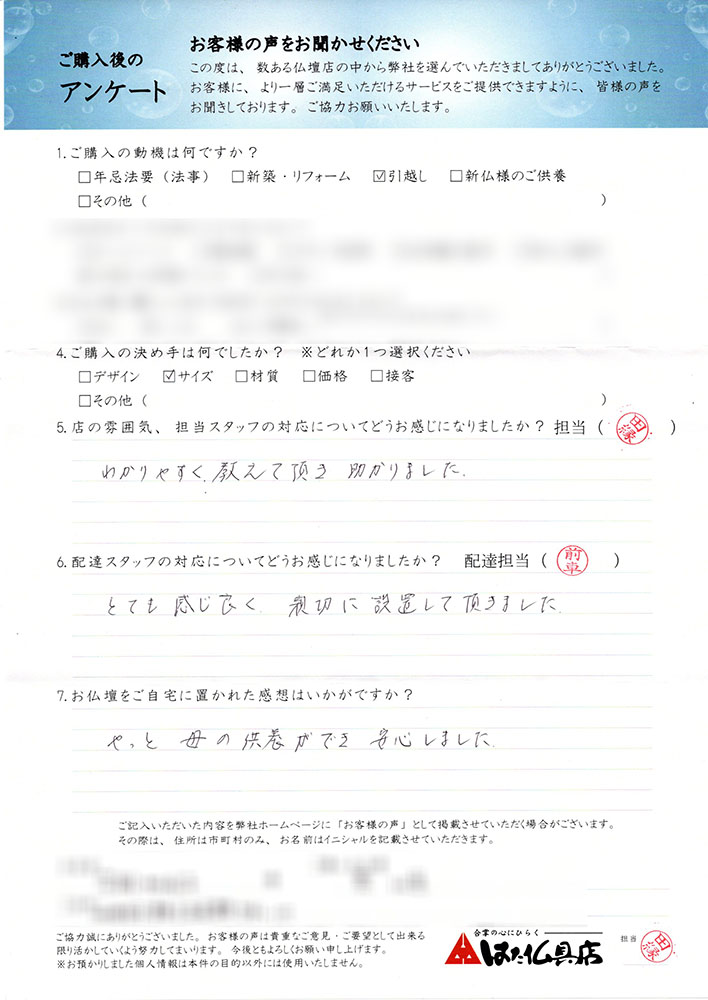 ご購入後の
アンケート
お客様の声をお聞かせください
この度は、数ある仏壇店の中から弊社を選んでいただきましてありがとうございました。
お客様に、より一層ご満足いただけるサービスをご提供できますように、皆様の声を
お聞きしております。ご協力お願いいたします。
1.ご購入の動機は何ですか？
□年忌法要（法事） □新築・リフォーム ☑引越し □新仏様のご供養
□その他（ ）
4.ご購入の決め手は何でしたか？ ※どれか1つ選択ください
□デザイン ☑サイズ □材質 □価格 □接客
□その他（ ）
5.店の雰囲気、担当スタッフの対応についてどうお感じになりましたか？ 担当（田縁）
わかりやすく、教えて頂き 助かりました。
6.配達スタッフの対応についてどうお感じになりましたか？ 配達担当（前車）
とても感じ良く、親切に設置して頂きました。
7.お仏壇をご自宅に置かれた感想はいかがですか？
やっと 母の供養ができ 安心しました。
ご記入いただいた内容を弊社ホームページに「お客様の声」として掲載させていただく場合がございます。
その際は、住所は市町村のみ、お名前はイニシャルを記載させていただきます。
ご協力誠にありがとうございました。お客様の声は貴重なご意見・ご要望として出来る
限り活かしていくよう努力してまいります。今後ともよろしくお願い申し上げます。
※お預かりしました個人情報は本件の目的以外には使用いたしません。
合掌の心にひらく
はた仏具店
担当 田縁